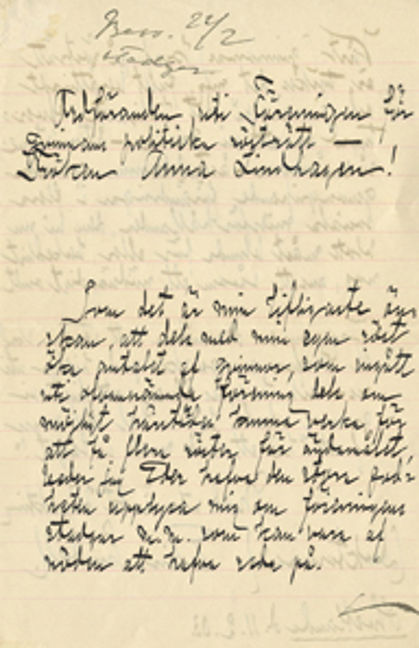 Besv. 24/2
stadgar
Ordföranden uti Föreningen för
qvinnans politiska rösträtt —
Fröken Anna Lindhagen!
Som det är min lifligaste ön-
skan, att dels med min egen röst
öka antalet af qvinnor, som ingått
uti ofvannämnda förening dels om
möjligt härstädes kunna verka för
att få flera röster för ändamålet,
beder jag Eder hafva den stora god-
heten upplysa mig om föreningens
stadgar m.m. som kan vara af
nöden att hafva reda på.